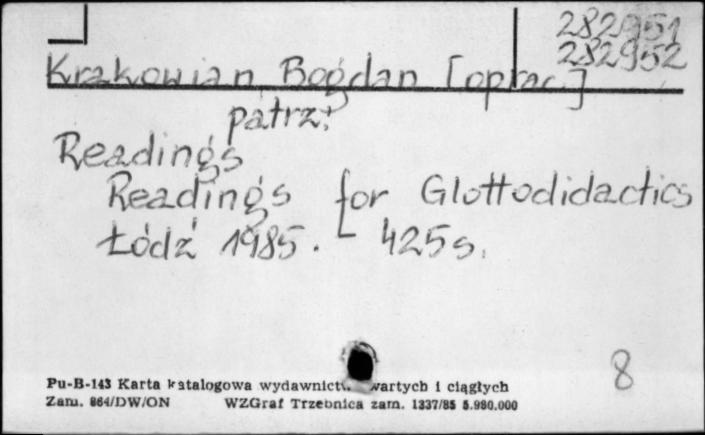 282951
282952
Krakowian Bogdan [oprac.]
patrz:
Readings
Readings for Glottodidactics
Łódź 1985. - 425 s.
8
Pu-B-143 Karta katalogowa wydawnictw zwartych i ciągłych
Zam. 864/DW/ON WZGraf Trzebnica zam. 1337/85 5.980.000